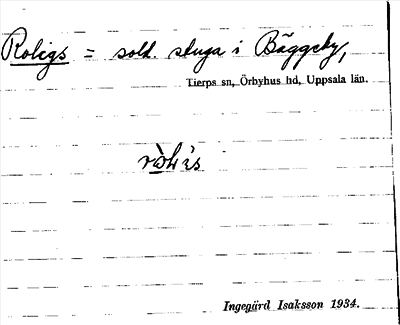 Roligs = sold. stuga i Bäggeby,
Tierps sn, Örbyhus hd, Uppsala län.
Ingegärd Isaksson 1934.